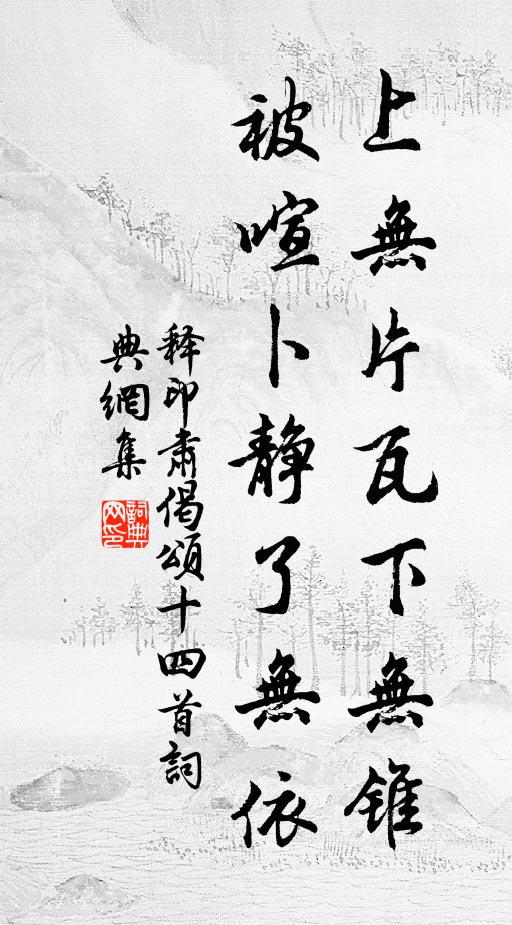 上無片瓦下無錐
被喧卜静了無依
释印肃偈頌十四首詞
典網集
詞典网印